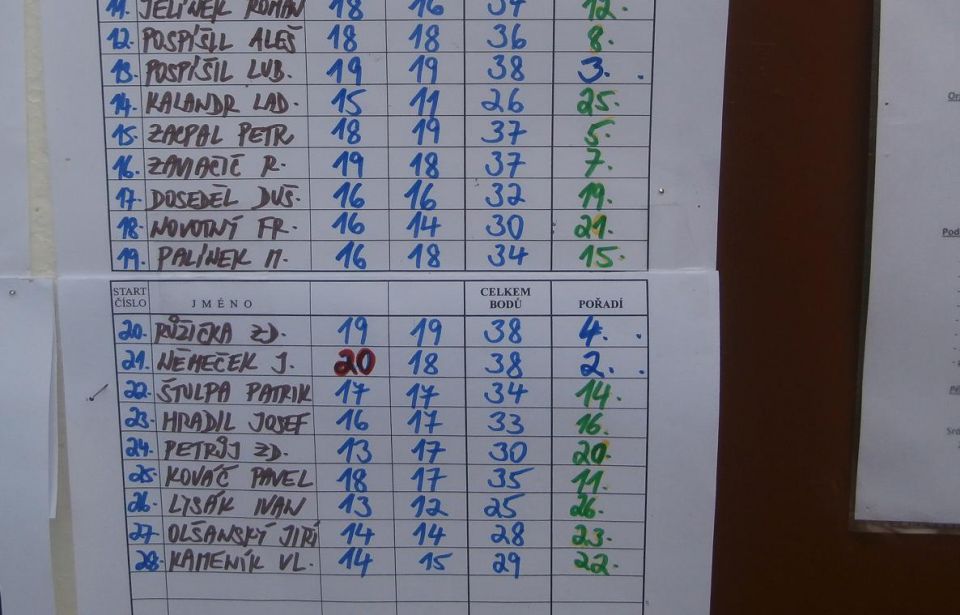 11. JELÍNEK ROMAN 18 16 34 12.
12. POSPÍŠIL ALEŠ 18 18 36 8.
13. POSPÍŠIL LUB. 19 19 38 3.
14. KALANDR LAD. 15 11 26 25.
15. ZACPAL PETR 18 19 37 5.
16. ZAVAČIČ R. 19 18 37 7.
17. DOSEDĚL DUŠ. 16 16 32 19.
18. NOVOTNÝ FR. 16 14 30 21.
19. PALÍNEK M. 16 18 34 15.
START ČÍSLO JMÉNO CELKEM BODŮ POŘADÍ
20. RŮŽIČKA ZD. 19 19 38 4.
21. NĚMEČEK J. 20 18 38 2.
22. ŠTULPA PATRIK 17 17 34 14.
23. HRADIL JOSEF 16 17 33 16.
24. PETRŮJ ZD. 13 17 30 20.
25. KOVÁČ PAVEL 18 17 35 11.
26. LISÁK IVAN 13 12 25 26.
27. OLŠANSKÝ JIŘÍ 14 14 28 23.
28. KAMENÍK VL. 14 15 29 22.